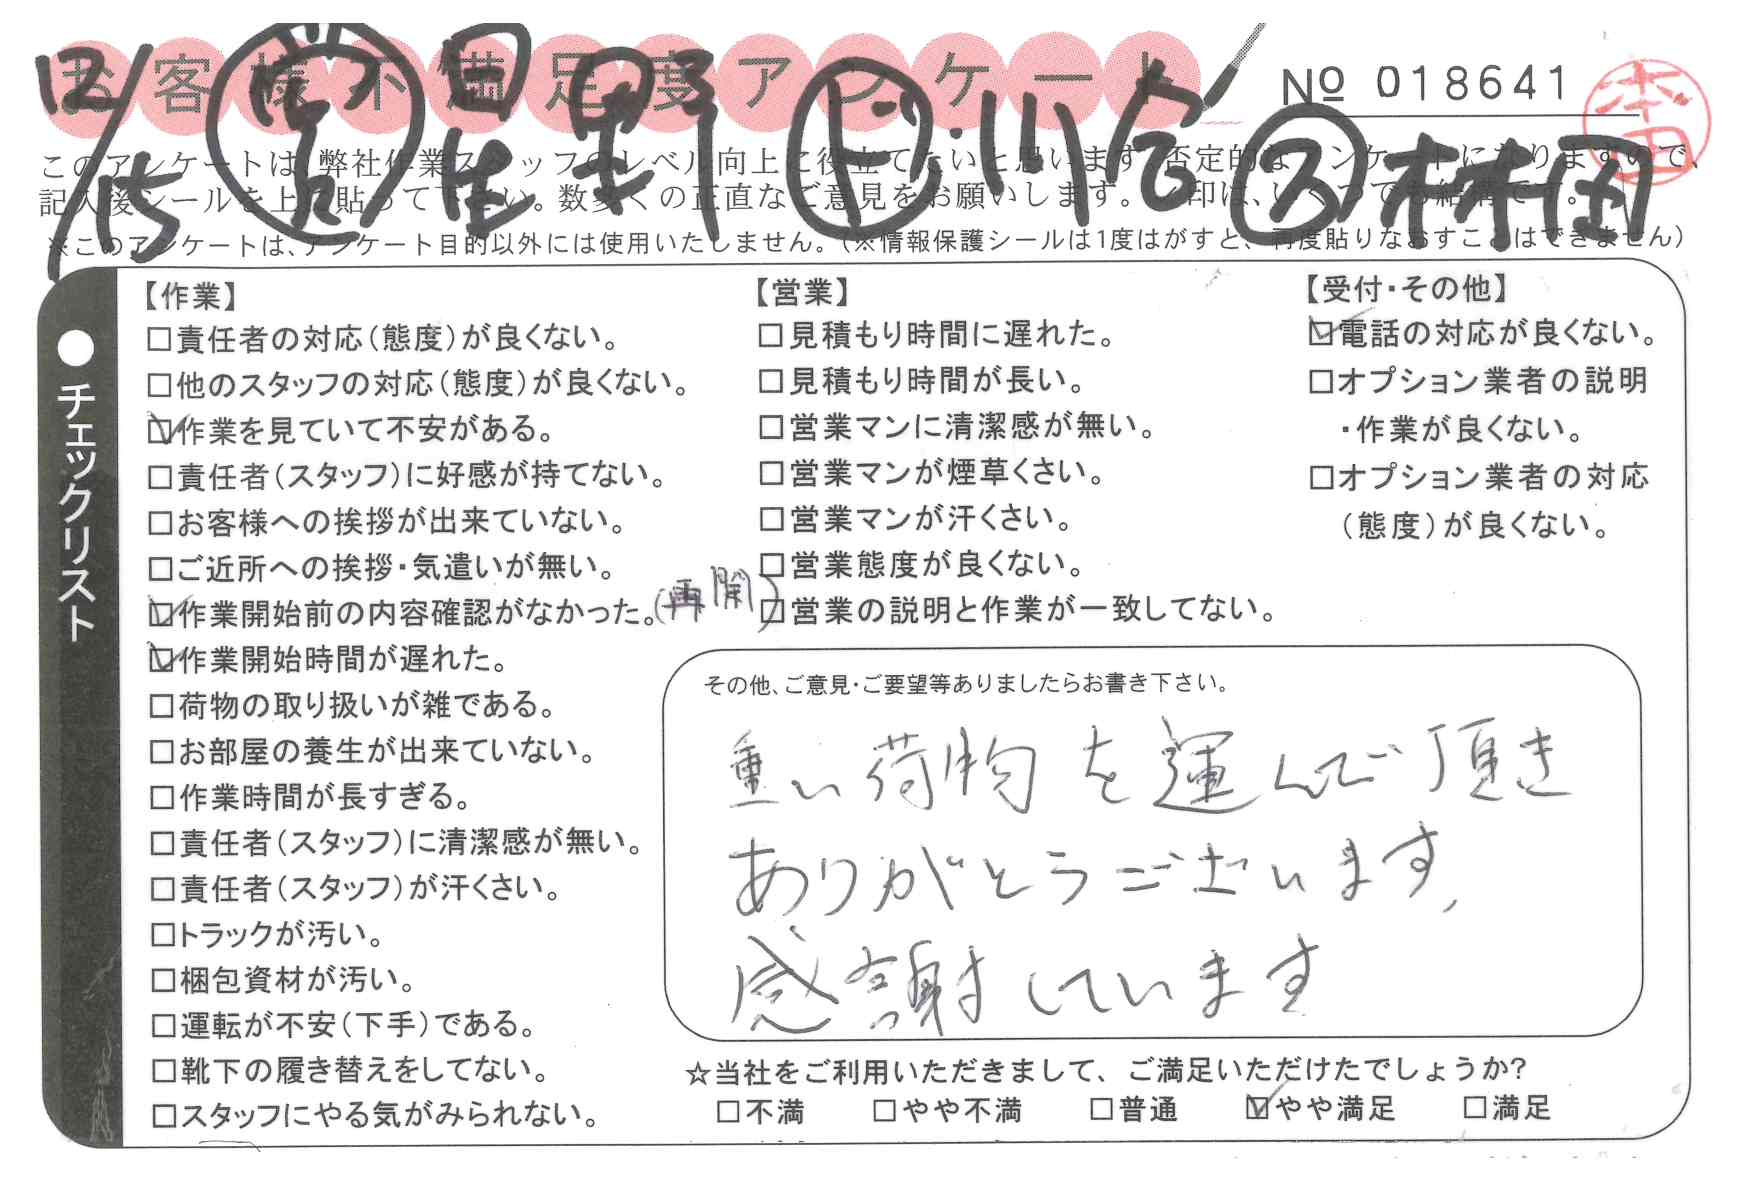 お客様不満足度アンケート
№ 018641
12/15 営 周佐野 ド 川合 ス 林田
このアンケートは、弊社作業スタッフのレベル向上に役立てたいと思います。否定的なアンケートになりますので、
記入後シールを上に貼って下さい。数多くの正直なご意見をお願いします。✓印は、いくつでも結構です。
※このアンケートは、アンケート目的以外には使用いたしません。(※情報保護シールは1度はがすと、再度貼りなおすことはできません)
●チェックリスト
【作業】
□責任者の対応(態度)が良くない。
□他のスタッフの対応(態度)が良くない。
☑作業を見ていて不安がある。
□責任者(スタッフ)に好感が持てない。
□お客様への挨拶が出来ていない。
□ご近所への挨拶・気遣いが無い。
☑作業開始前の内容確認がなかった。(再開)
☑作業開始時間が遅れた。
□荷物の取り扱いが雑である。
□お部屋の養生が出来ていない。
□作業時間が長すぎる。
□責任者(スタッフ)に清潔感が無い。
□責任者(スタッフ)が汗くさい。
□トラックが汚い。
□梱包資材が汚い。
□運転が不安(下手)である。
□靴下の履き替えをしてない。
□スタッフにやる気がみられない。
【営業】
□見積もり時間に遅れた。
□見積もり時間が長い。
□営業マンに清潔感が無い。
□営業マンが煙草くさい。
□営業マンが汗くさい。
□営業態度が良くない。
□営業の説明と作業が一致してない。
【受付・その他】
☑電話の対応が良くない。
□オプション業者の説明
・作業が良くない。
□オプション業者の対応
(態度)が良くない。
その他、ご意見・ご要望等ありましたらお書き下さい。
重い荷物を運んで頂き
ありがとうございます、
感謝しています
☆当社をご利用いただきまして、ご満足いただけたでしょうか?
□不満 □やや不満 □普通 ☑やや満足 □満足